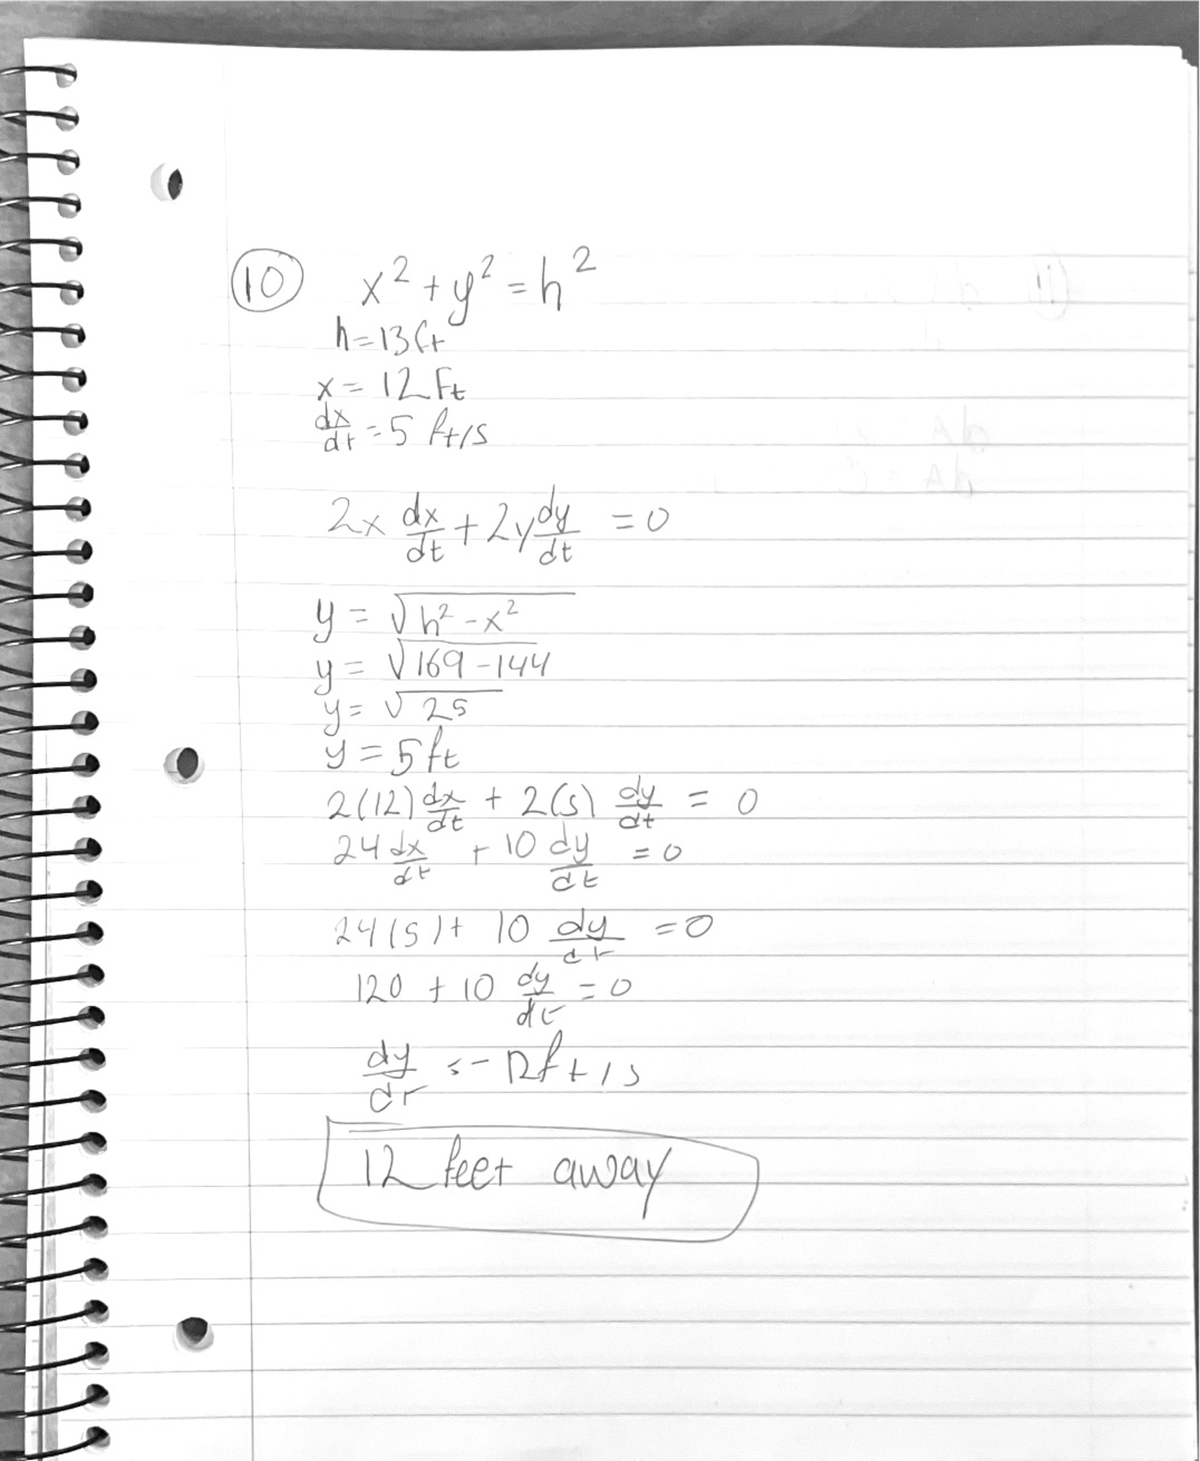 10 x² + y² = h²
h = 13 ft
x = 12 Ft
dx/dt = 5 ft/s
2x dx/dt + 2y dy/dt = 0
y = √h² - x²
y = √169 - 144
y = √25
y = 5 ft
2(12) dx/dt + 2(5) dy/dt = 0
24 dx/dt + 10 dy/dt = 0
24(5) + 10 dy/dt = 0
120 + 10 dy/dt = 0
dy/dt = -12 ft/s
12 feet away